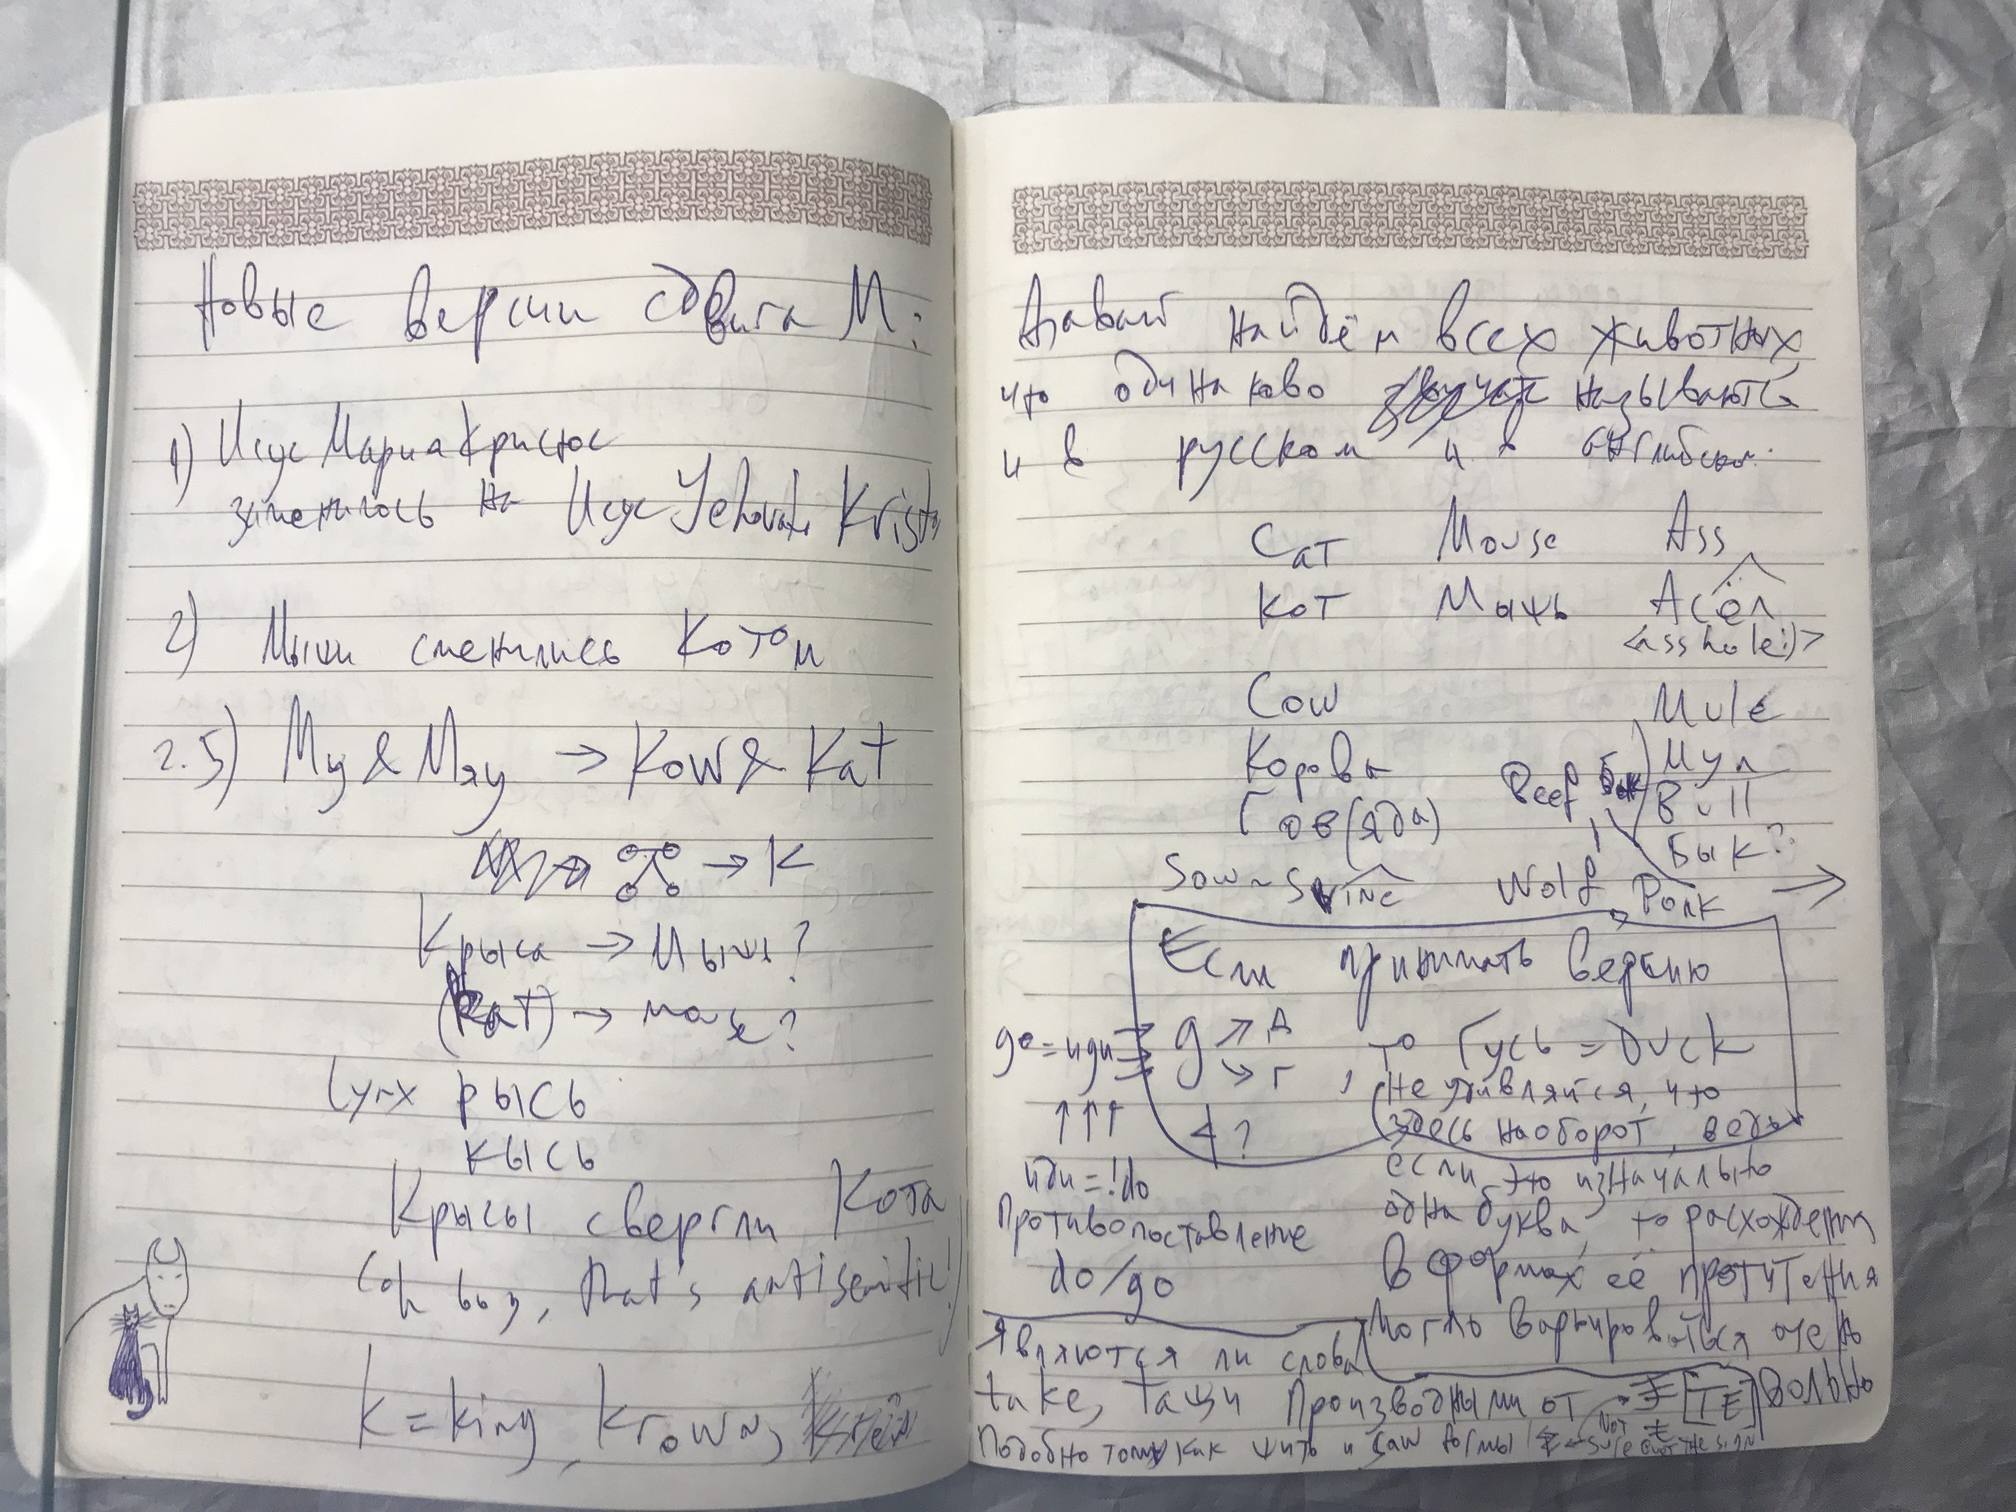 Новые версии сдвига М:
1) Исус Мария Кристос
заменилось на Исус Jehovah Krist
2) Мыши сменились Котом
2.5) Му & Мяу → Kow & Kat
→ K
Крыса → Мышь?
(Rat) → mouse?
Lynx рысь
кысь
Крысы свергли Кота
(oh boy, that's antisemitic!)
K = king, Krown,
Давай найдём всех животных
что одинаково называются
и в русском и в английском:
Cat Mouse Ass
Кот Мышь Асёл
<asshole:)>
Cow Mule
Корова Мул
Гов(яда) Beef Бык Bull
Бык?
Sow ~ Swine Wolf Pork →
Если принимать версию
go = иди g ↗ д
↘ г , то Гусь = Duck
↑↑↑ 4?
не удивляйся, что
здесь наоборот, ведь
если это изначально
одна буква, то расхождения
в формах её прочтения
могло варьироваться очень
вольно
иди = !do
Противопоставление
do/go
Являются ли слова
take, тащи производными от [TE]
Подобно тому как жить и формы not sure about the sign